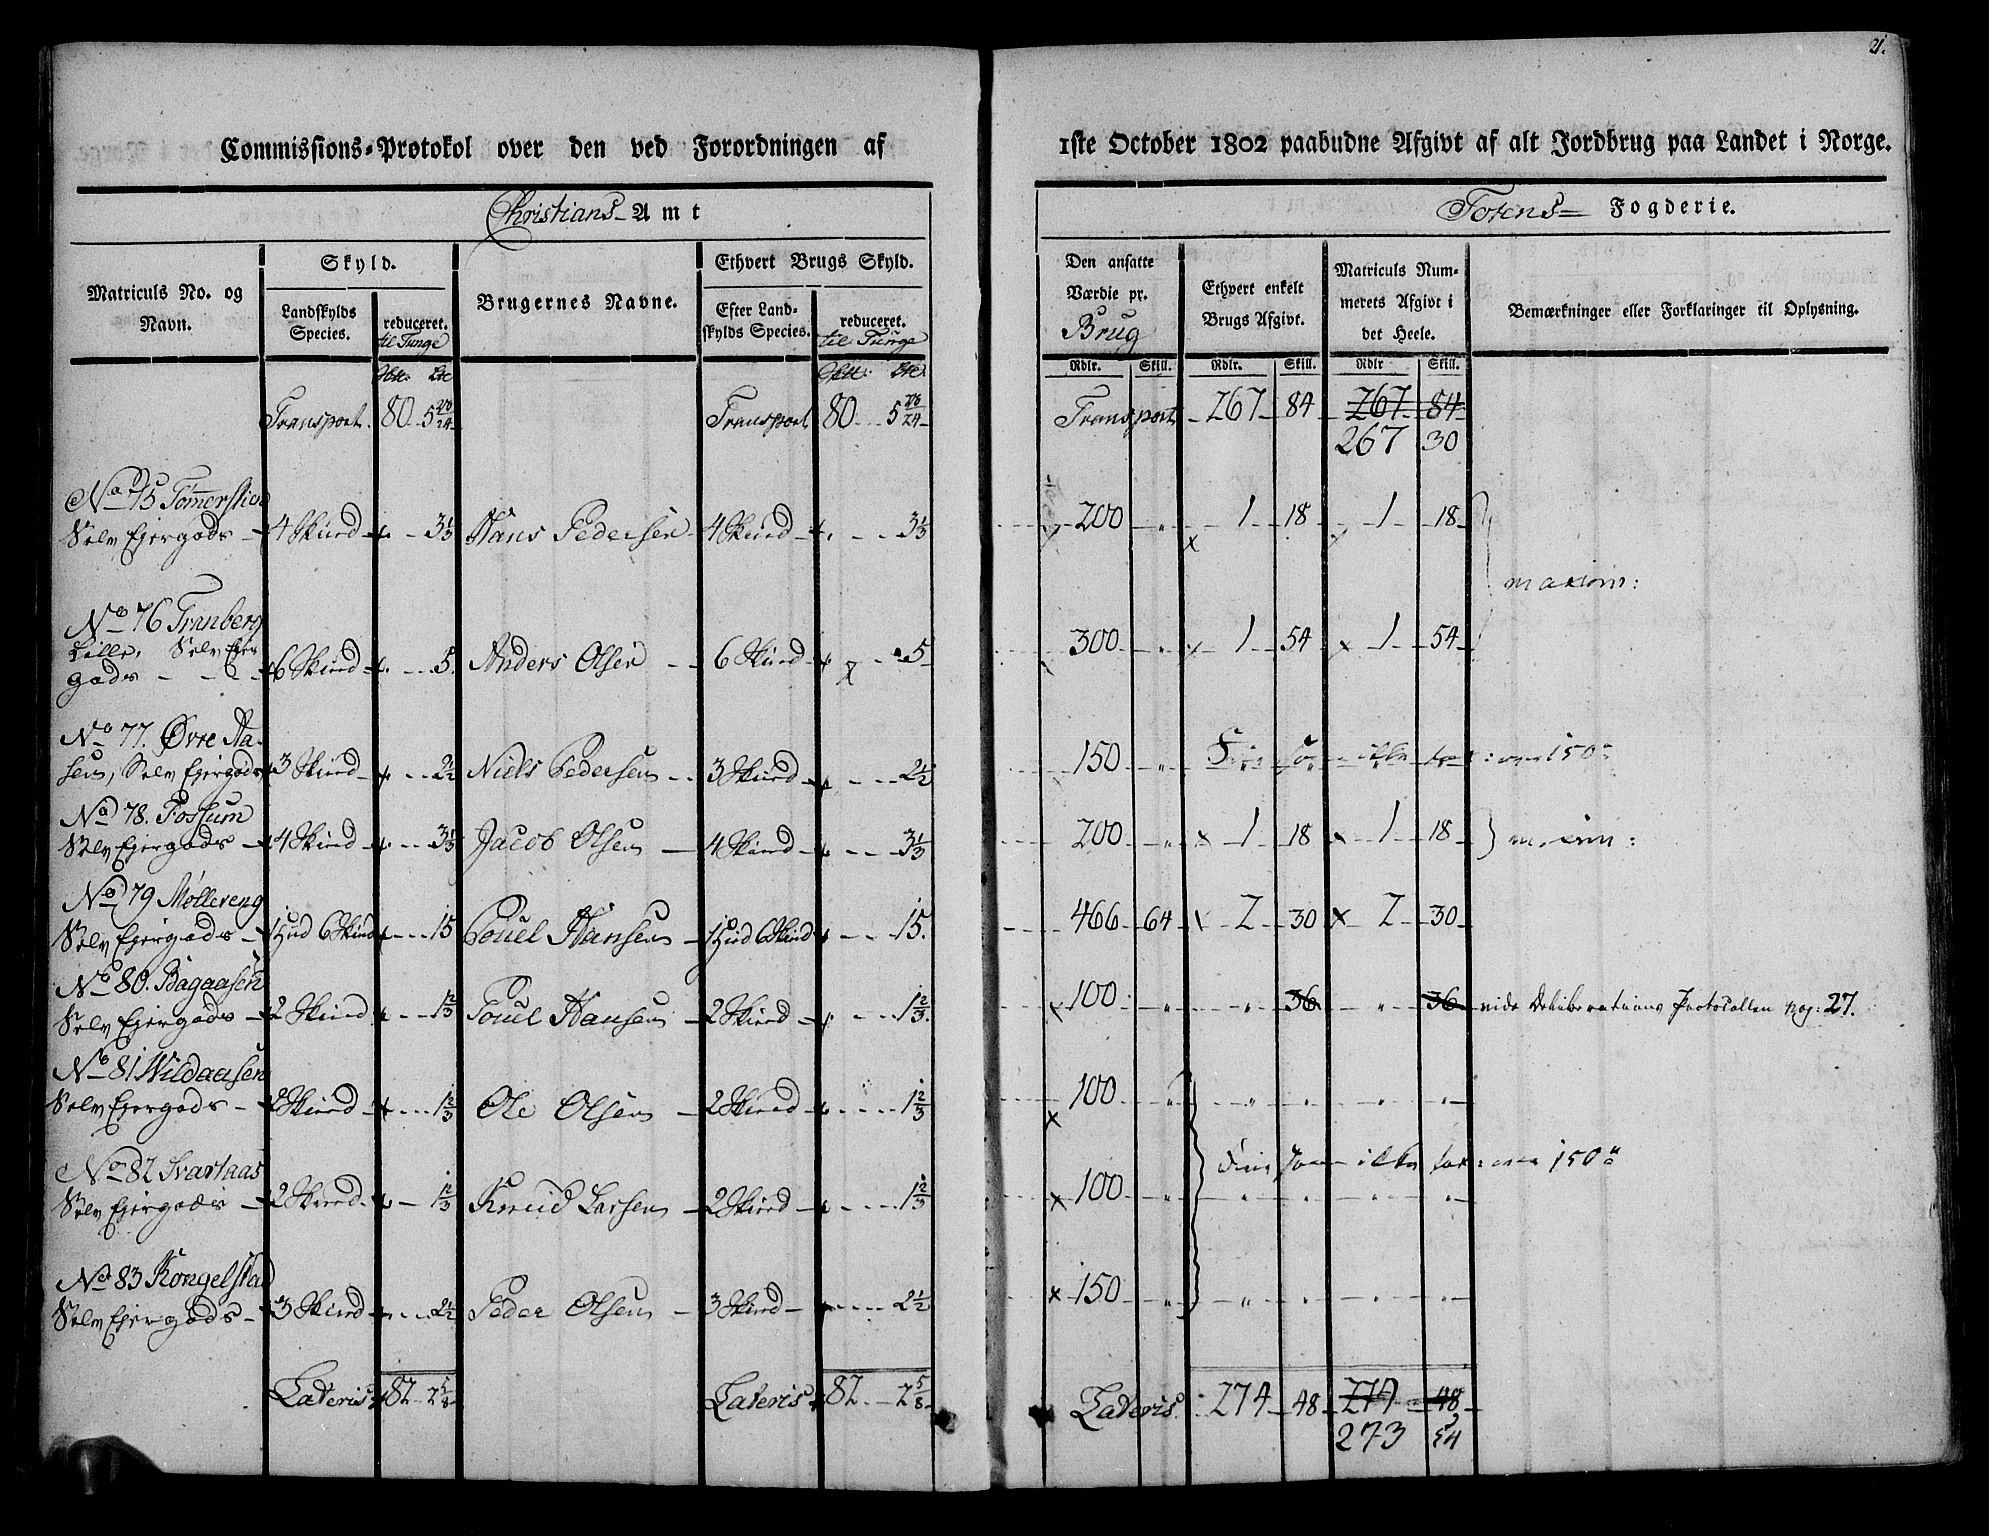 21.
Commissions-Protokol over den ved Forordningen af 1ste October 1802 paabudne Afgivt af alt Jordbrug paa Landet i Norge.
Christians- Amt
Totens= Fogderie.
Matriculs No. og Navn.
Skyld.
Landskylds Species.
reduceret. til Tunge
Brugernes Navne.
Ethvert Brugs Skyld.
Efter Landskylds Species.
reduceret. til Tunge
Den ansatte Værdie pr. Brug
Ethvert enkelt Brugs Afgivt.
Matriculs Nummerets Afgivt i det Heele.
Bemærkninger eller Forklaringer til Oplysning.
Rdlr. Skill. Rdlr. Skill. Rdlr Skill.
Transport. 80 5 Transport 80 5 Transport 267 84 267 84
267 30
No 75 Tømmerstien
Selv Ejergods 4 Skind 3 1/3 Hans Pedersen 4 Skind 3 1/3 200 " 1 18 1 18
maxim:
No 76 Tranberg
Lille, Selv Ejer
gods 6 Skind 5. Anders Olsen 6 Skind 5 300 " 1 54 1 54
No 77. Øvre Aa-
sen, Selv Ejergods 3 Skind 2 1/2 Niels Pedersen 3 Skind 2 1/2 150 " Frie som ikke over 150
No 78. Fossum
Selv Ejergods 4 Skind 3 1/3 Jacob Olsen 4 Skind 3 1/3 200 " 1 18 1 18 maxim:
No 79 Møllereng
Selv Ejergods 1 Hud 6 Skind 15 Pouel Hansen 1 Hud 6 Skind 15. 466 64 2 30 2 30
No 80. Bagaasen
Selv Ejergods 2 Skind 1 2/3 Pouel Hansen 2 Skind 1 2/3. 100 " " 36 " 36 vide Deliberations Protocollen pag: 27.
No 81 Wildaasen
Selv Ejergods 2 Skind 1 2/3 Ole Olsen 2 Skind 1 2/3 100 " " " " "
Frie som ikke over 150
No 82 Svartaas
Selv Ejergods 2 Skind 1 2/3 Knud Larsen 2 Skind 1 2/3 100 " " " " "
No 83 Kongelstad
Selv Ejergods 3 Skind 2 1/2 Peder Olsen 3 Skind 2 1/2 150 " " " " "
Lateris 82 2 5/8 Lateris 82 2 5/8 Lateris. 274 48 274 48
273 54